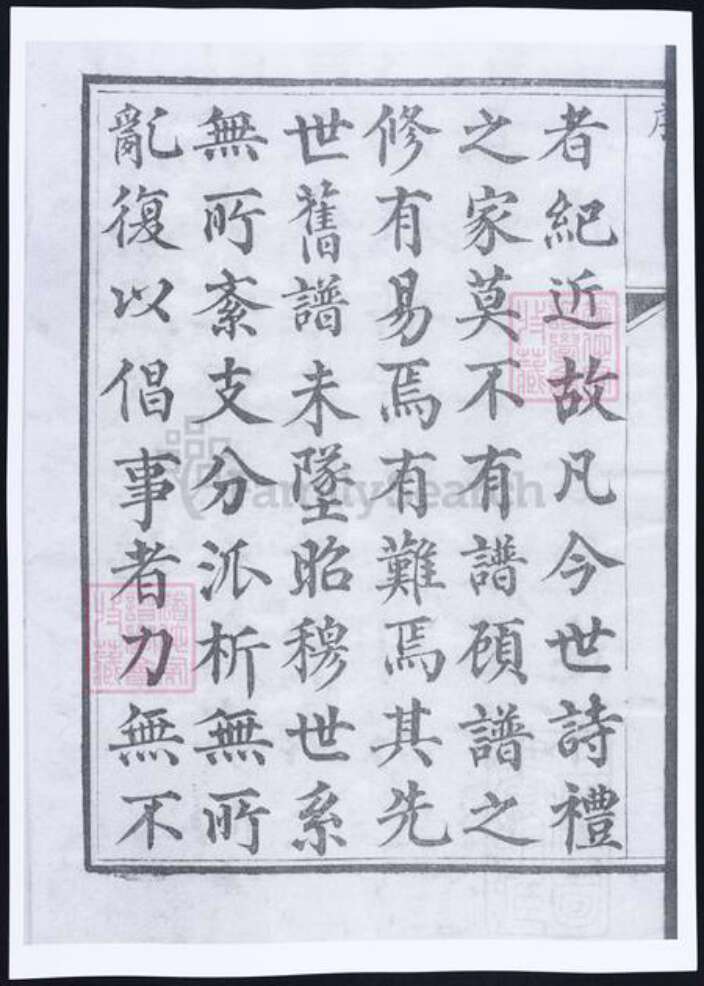 序
者紀近故凡今世詩禮
之家莫不有譜顧譜之
修有易焉有難焉其先
世舊譜未墜昭穆世系
無所紊支分派析無所
亂復以倡事者力無不
FamilySearch